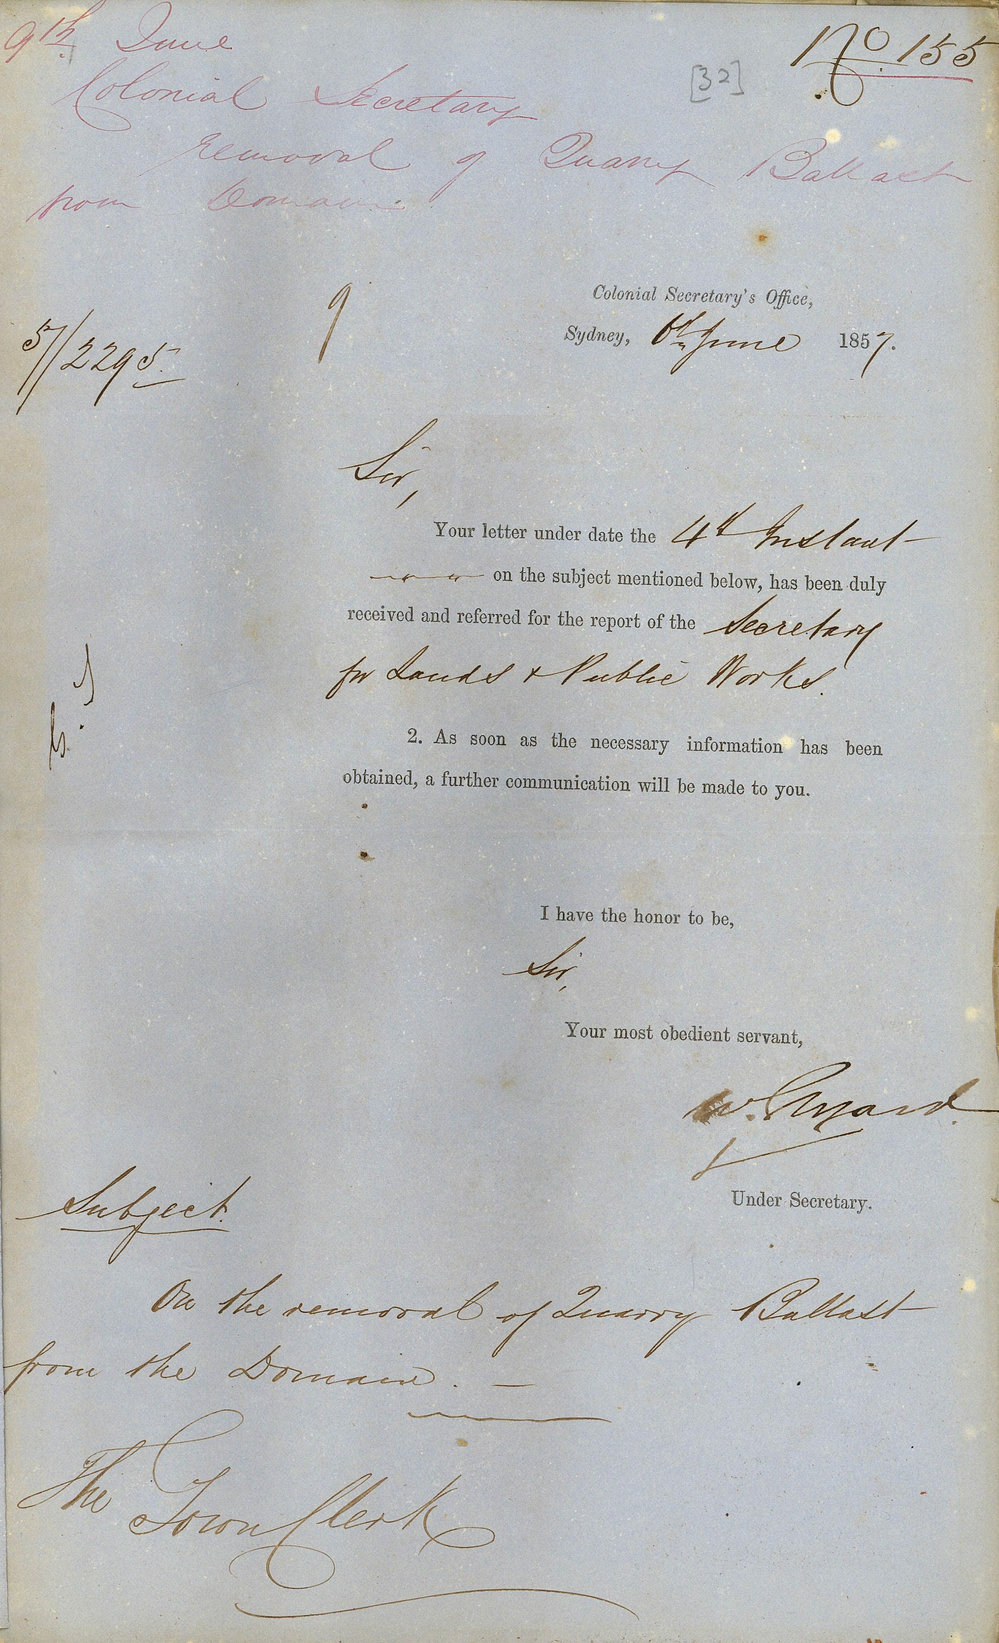 9th June
No. 155
[32]
Colonial Secretary
removal of Quarry Ballast
from Domain
Colonial Secretary's Office,
9
Sydney, 6th June 1857.
57/2295
Sir,
Your letter under date the 4th Instant
on the subject mentioned below, has been duly
received and referred for the report of the Secretary
for Lands & Public Works.
2. As soon as the necessary information has been
obtained, a further communication will be made to you.
I have the honor to be,
Sir,
Your most obedient servant,
W. Elyard.
Under Secretary.
Subject.
On the removal of Quarry Ballast
from the Domain. —
The Town Clerk